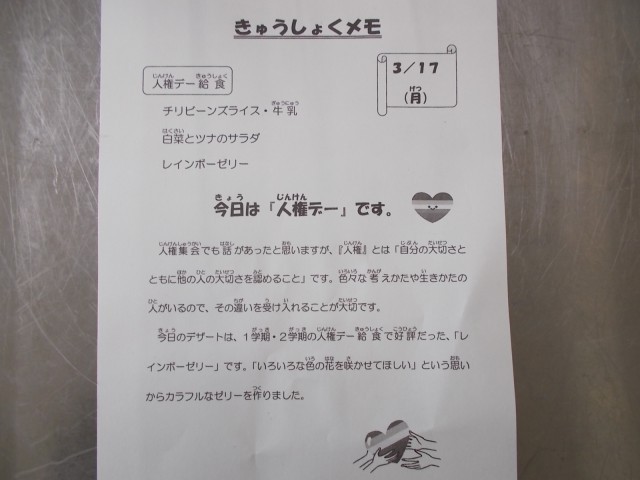 きゅうしょくメモ
3／17
（月）
人権デー給食
チリビーンズライス・牛乳
白菜とツナのサラダ
レインボーゼリー
今日は『人権デー』です。
人権集会でも話があったと思いますが、『人権』とは「自分の大切さと
ともに他の人の大切さを認めること」です。色々な考えかたや生きかたの
人がいるので、その違いを受け入れることが大切です。
今日のデザートは、1学期・2学期の人権デー給食で好評だった、「レ
インボーゼリー」です。「いろいろな色の花を咲かせてほしい」という思い
からカラフルなゼリーを作りました。